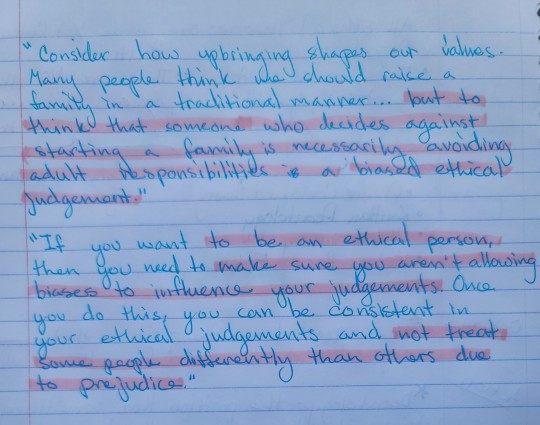 "Consider how upbringing shapes our values.
Many people think we should raise a
family in a traditional manner... but to
think that someone who decides against
starting a family is necessarily avoiding
adult responsibilities is a biased ethical
judgement."
"If you want to be an ethical person,
then you need to make sure you aren't allowing
biases to influence your judgements. Once
you do this, you can be consistent in
your ethical judgements and not treat
some people differently than others due
to prejudice."